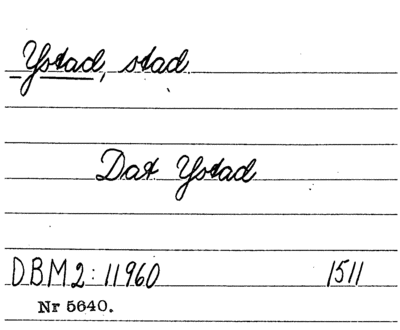 Ystad, stad.
Dat Ystad
DBM2:11960 1511
Nr 5640.